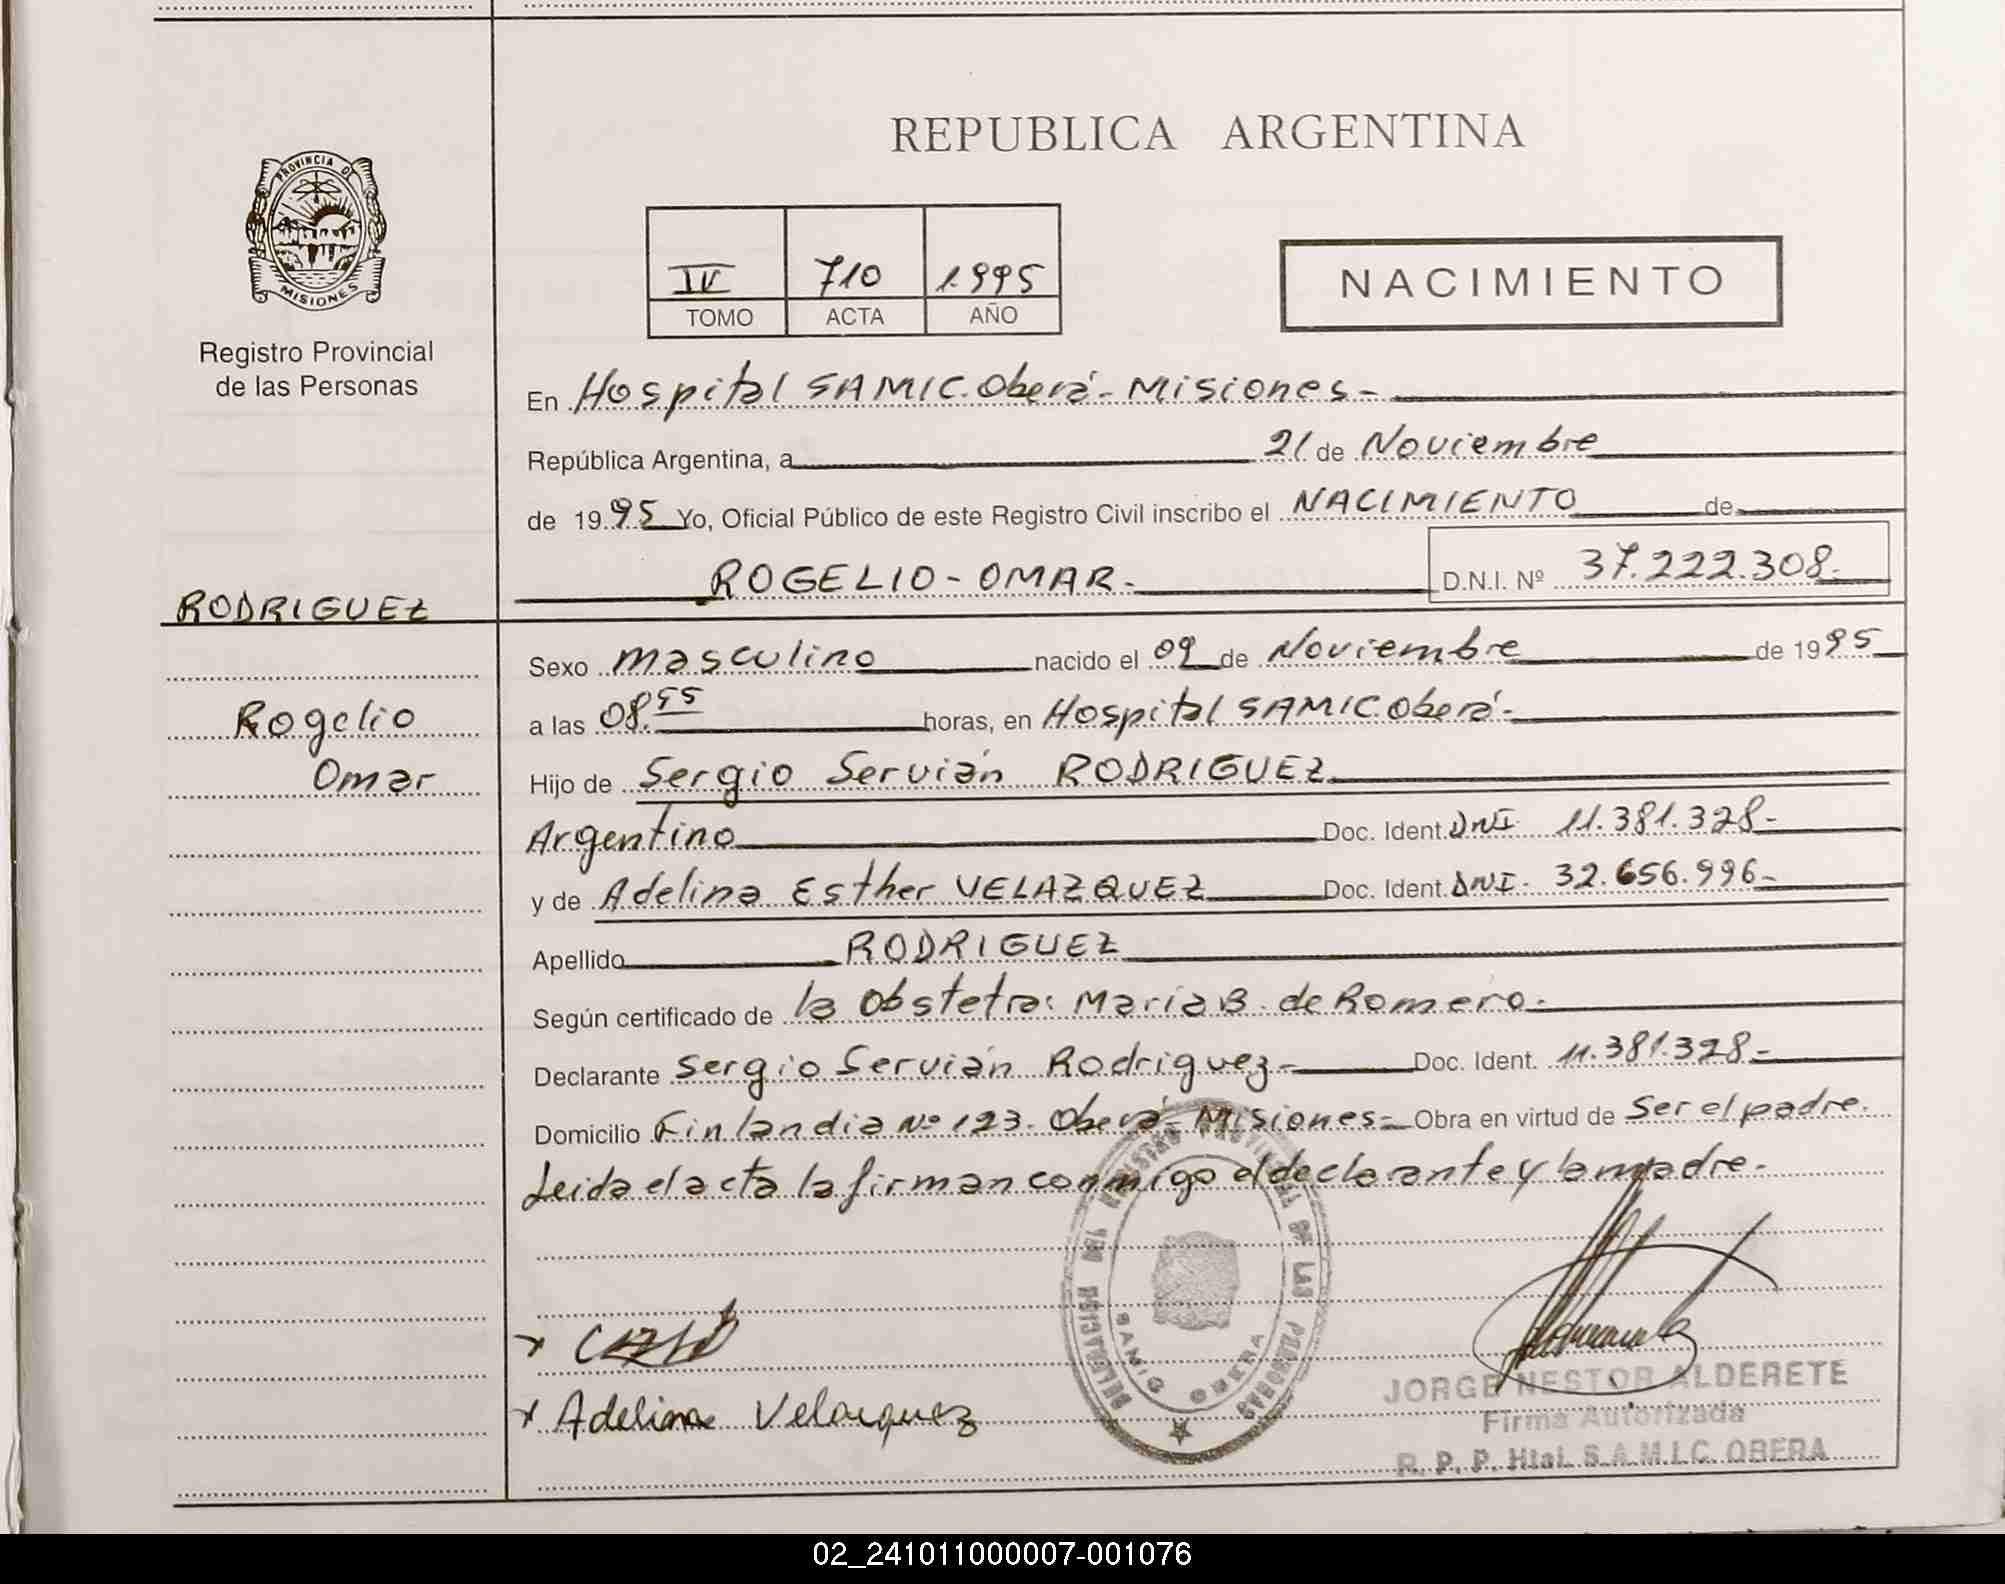 REPUBLICA ARGENTINA
PROVINCIA DE
MISIONES
Registro Provincial
de las Personas
IV 710 1.995
TOMO ACTA AÑO
NACIMIENTO
En Hospital SAMIC. Oberá - Misiones -
República Argentina, a 21 de Noviembre
de 1995 Yo, Oficial Público de este Registro Civil inscribo el NACIMIENTO de
ROGELIO - OMAR.
D.N.I. Nº 37.222.308.
RODRIGUEZ
Rogelio
Omar
Sexo masculino nacido el 09 de Noviembre de 1995
a las 08. horas, en Hospital SAMIC Oberá -
Hijo de Sergio Servián RODRIGUEZ
Argentino Doc. Ident. DNI 11.381.328 -
y de Adelina Esther VELAZQUEZ Doc. Ident. DNI - 32.656.996 -
Apellido RODRIGUEZ
Según certificado de la Obstetra: Maria B. de Romero -
Declarante Sergio Servián Rodriguez - Doc. Ident. 11.381.328 -
Domicilio Finlandia Nº 123. Oberá - Misiones - Obra en virtud de Ser el padre.
Leida el acta la firman conmigo el declarante y la madre -
REGISTRO PROVINCIAL DE LAS PERSONAS
SAMIC OBERA
x
x Adelina Velazquez
JORGE NESTOR ALDERETE
Firma Autorizada
R. P. P. Htal. S.A.M.I.C. OBERA
02_241011000007-001076